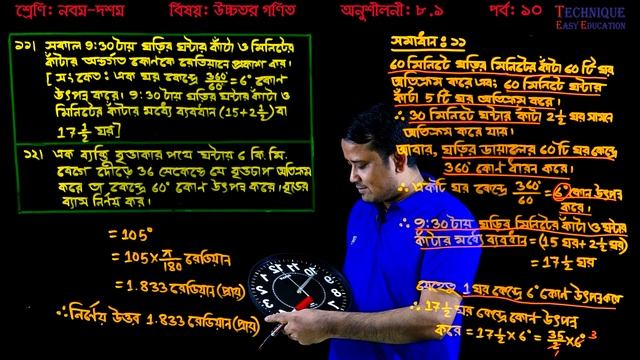 শ্রেণি: নবম-দশম
বিষয়: উচ্চতর গণিত
অনুশীলনী: ৮.১
পর্ব: ১০
TECHNIQUE
EASY EDUCATION
১১। সকাল 9:30 টায় ঘড়ির ঘন্টার কাঁটা ও মিনিটের
কাঁটার অন্তর্গত কোণকে রেডিয়ানে প্রকাশ কর।
[সংকেত: এক ঘর কেন্দ্রে 360°/60 = 6° কোণ
উৎপন্ন করে। 9:30 টায় ঘড়ির ঘন্টার কাঁটা ও
মিনিটের কাঁটার মধ্যে ব্যবধান (15+2 1/2) বা
17 1/2 ঘর]
১২। এক ব্যক্তি বৃত্তাকার পথে ঘন্টায় 6 কি.মি.
বেগে দৌড়ে 36 সেকেন্ডে যে বৃত্তচাপ অতিক্রম
করে তা কেন্দ্রে 60° কোণ উৎপন্ন করে। বৃত্তের
ব্যাস নির্ণয় কর।
= 105°
= 105 × π/180 রেডিয়ান
= 1.833 রেডিয়ান (প্রায়)
∴ নির্ণেয় উত্তর 1.833 রেডিয়ান (প্রায়)
সমাধান: ১১
60 মিনিটে ঘড়ির মিনিটের কাঁটা 60 টি ঘর
অতিক্রম করে এবং 60 মিনিটে ঘন্টার
কাঁটা 5 টি ঘর অতিক্রম করে।
∴ 30 মিনিটে ঘন্টার কাঁটা 2 1/2 ঘর সামনে
অতিক্রম করে যায়।
আবার, ঘড়ির ডায়ালের 60 টি ঘর কেন্দ্রে
360° কোণ ধারন করে।
∴ একটি ঘর কেন্দ্রে 360°/60 = 6° কোণ উৎপন্ন
করে।
∴ 9:30 টায় ঘড়ির মিনিটের কাঁটা ও ঘন্টার
কাঁটার মধ্যে ব্যবধান = (15 ঘর + 2 1/2 ঘর)
= 17 1/2 ঘর
1 ঘর কেন্দ্রে 6° কোণ উৎপন্ন করে
∴ 17 1/2 ঘর কেন্দ্রে কোণ উৎপন্ন
করে = 17 1/2 × 6° = 35/2 × 6° 3